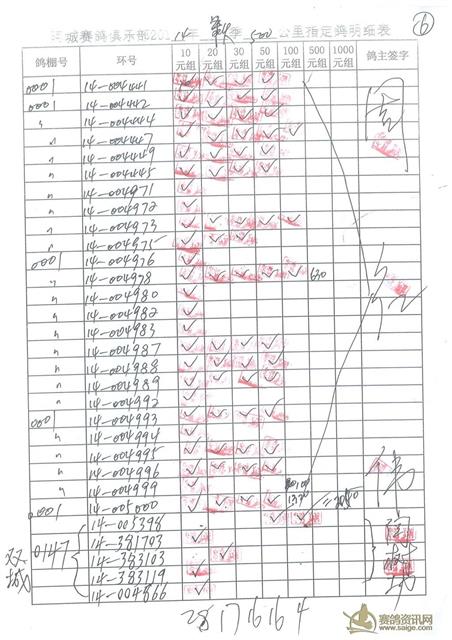 城赛鸽俱乐部201 14 年 季 500 公里指定鸽明细表
6
鸽棚号 环号 10元组 20元组 30元组 50元组 100元组 500元组 1000元组 鸽主签字
0001 14-004441 ✓ ✓ ✓ ✓
0001 14-004442 ✓ ✓ ✓ ✓
〃 14-004444 ✓ ✓ ✓ ✓
〃 14-004447 ✓ ✓ ✓ ✓ ✓
〃 14-004449 ✓ ✓ ✓ ✓
〃 14-004445 ✓ ✓ ✓ ✓
〃 14-004971 ✓
〃 14-004972 ✓
〃 14-004973 ✓ ✓ ✓ ✓ ✓
〃 14-004975 ✓ ✓ ✓
0001 14-004976 ✓
〃 14-004978 ✓ ✓ ✓ ✓ ✓
〃 14-004980 ✓
〃 14-004982 ✓
〃 14-004983 ✓
〃 14-004987 ✓ ✓ ✓ ✓
〃 14-004988 ✓ ✓ ✓ ✓
〃 14-004989 ✓ ✓ ✓
〃 14-004992 ✓
0001 14-004993 ✓ ✓ ✓ ✓
〃 14-004994 ✓
〃 14-004995 ✓ ✓ ✓ ✓
〃 14-004996 ✓ ✓ ✓ ✓
〃 14-004999 ✓
0001 14-005000 ✓ ✓ ✓ ✓ ✓
14-005398 ✓ ✓
双城 0147 14-381703 ✓
14-383103 ✓ ✓
14-383119 ✓
14-004866 ✓
28 17 16 16 4
赛鸽资讯网
www.saige.com